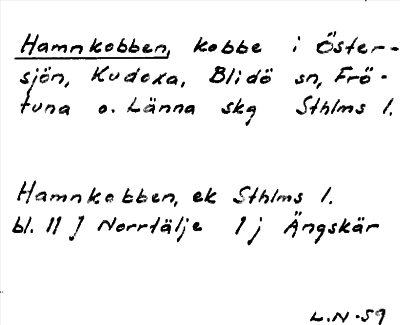 Hamnkobben, kobbe i Öster-
sjön, Kudoxa, Blidö sn, Frö-
tuna o. Länna skg Sthlms l.
Hamnkobben, ek Sthlms l.
bl. 11 J Norrtälje 1 j Ängskär
L.N-59